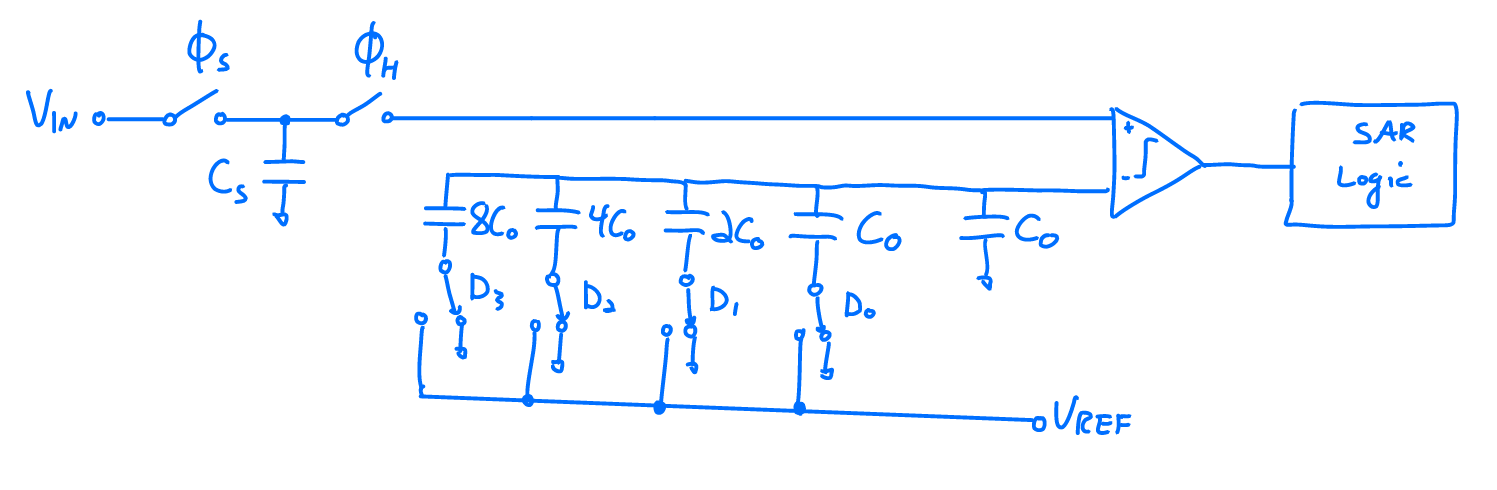 ϕS
ϕH
VIN
CS
+
-
SAR
Logic
8C0
4C0
2C0
C0
C0
D3
D2
D1
D0
VREF